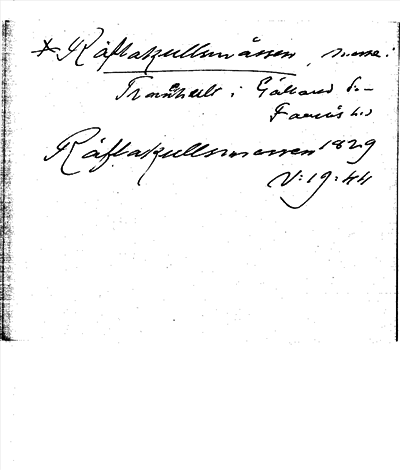 * Räflakullsmåssen, mosse i
Tranhult i Gällared s–
Faurås hd
Räflakullsmossen 1829
V:19:44